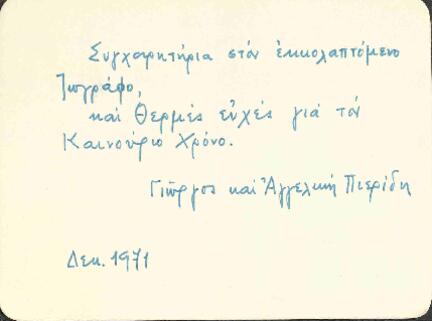 Συγχαρητήρια στόν ἐκκολαπτόμενο
ζωγράφο,
καί θερμές εὐχές γιά τόν
Καινούριο Χρόνο.
Γιῶργος καί Ἀγγελική Πιερίδη
Δεκ. 1971